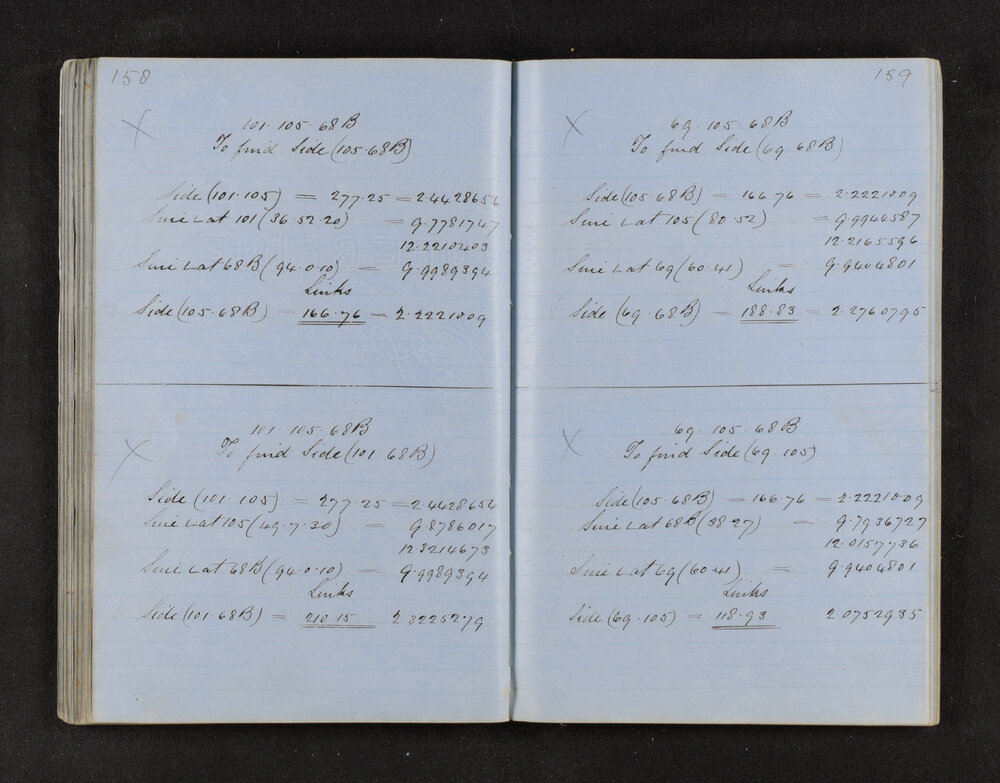 158
101. 105. 68B
To find Side (105.68B)
Side (101.105) = 277.25 = 2.4428656
Sine ∠ at 101 (36.52.20) = 9.7781747
12.2210403
Sine ∠ at 68B (94.0.10) = 9.9989394
Links
Side (105.68B) = 166.76 = 2.2221009
101. 105. 68B
To find Side (101.68B)
Side (101.105) = 277.25 = 2.4428656
Sine ∠ at 105 (49.7.30) = 9.8786017
12.3214673
Sine ∠ at 68B (94.0.10) = 9.9989394
Links
Side (101.68B) = 210.15 2.3225279
159
69. 105. 68B
To find Side (69.68B)
Side (105.68B) = 166.76 = 2.2221009
Sine ∠ at 105 (80.52) = 9.9944587
12.2165596
Sine ∠ at 69 (60.41) = 9.9404801
Links
Side (69.68B) = 188.83 = 2.2760795
69. 105. 68B
To find Side (69.105)
Side (105.68B) = 166.76 = 2.2221009
Sine ∠ at 68B (38.27) = 9.7936727
12.0157736
Sine ∠ at 69 (60.41) = 9.9404801
Links
Side (69.105) = 118.93 2.0752935